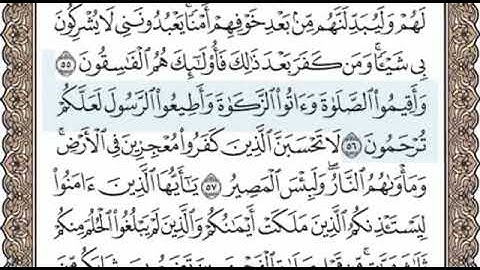 لَهُمْ وَلَيُبَدِّلَنَّهُم مِّنۢ بَعْدِ خَوْفِهِمْ أَمْنًا ۚ يَعْبُدُونَنِى لَا يُشْرِكُونَ
بِى شَيْـًٔا ۚ وَمَن كَفَرَ بَعْدَ ذَٰلِكَ فَأُو۟لَٰٓئِكَ هُمُ ٱلْفَٰسِقُونَ ٥٥
وَأَقِيمُوا۟ ٱلصَّلَوٰةَ وَءَاتُوا۟ ٱلزَّكَوٰةَ وَأَطِيعُوا۟ ٱلرَّسُولَ لَعَلَّكُمْ
تُرْحَمُونَ ٥٦ لَا تَحْسَبَنَّ ٱلَّذِينَ كَفَرُوا۟ مُعْجِزِينَ فِى ٱلْأَرْضِ ۚ
وَمَأْوَىٰهُمُ ٱلنَّارُ ۖ وَلَبِئْسَ ٱلْمَصِيرُ ٥٧ يَٰٓأَيُّهَا ٱلَّذِينَ ءَامَنُوا۟
لِيَسْتَـْٔذِنكُمُ ٱلَّذِينَ مَلَكَتْ أَيْمَٰنُكُمْ وَٱلَّذِينَ لَمْ يَبْلُغُوا۟ ٱلْحُلُمَ مِنكُمْ